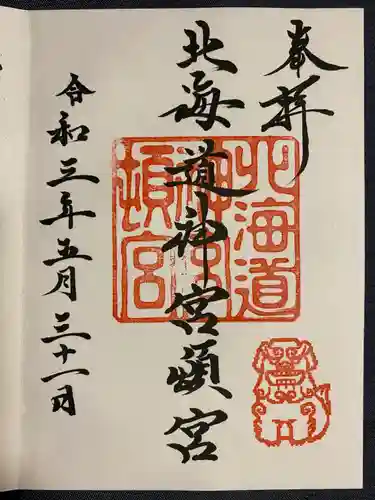 奉拝
北海道神宮頓宮
令和三年五月三十一日
北海道
神宮
頓宮